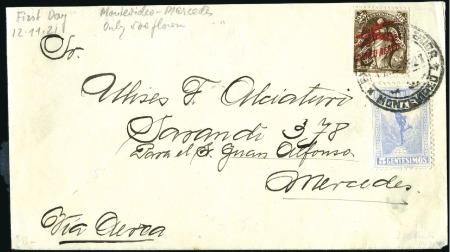 First Day
12.11.21
Montevideo - Mercedes
Only 500 flown
Sr.
Ulises F. Alciaturi
Sarandi 378
Para el S. Juan Alfonso
Mercedes
Via Aerea
MONTEVIDEO
5 CENTESIMOS 5